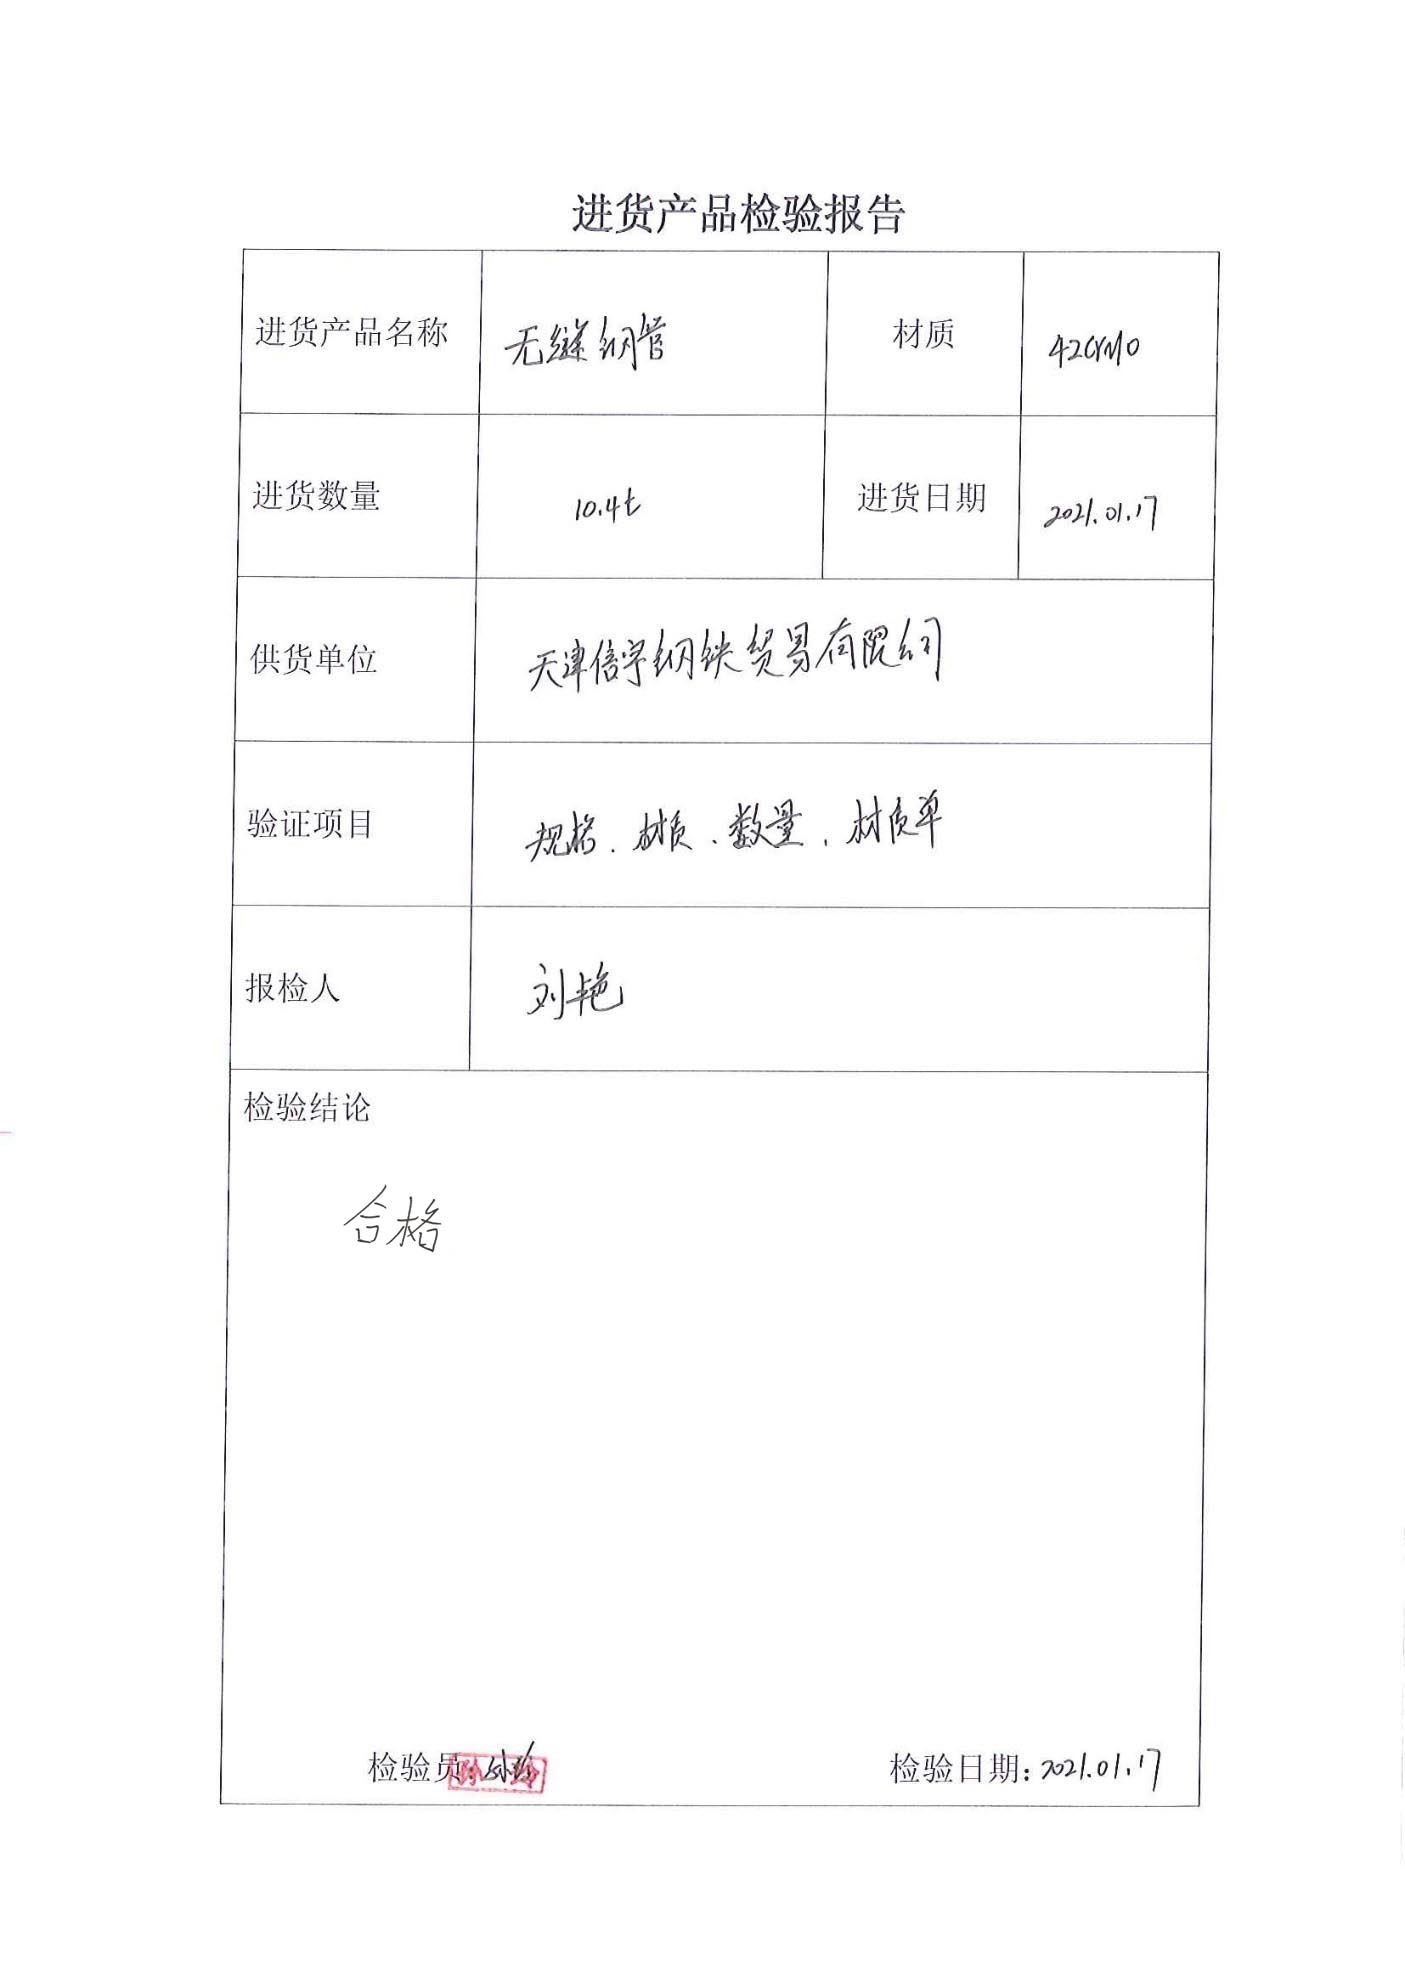 进货产品检验报告
进货产品名称 无缝钢管 材质 42CrMo
进货数量 10.4t 进货日期 2021.01.17
供货单位 天津信宇钢铁贸易有限公司
验证项目 规格、材质、数量、材质单
报检人 刘艳
检验结论
合格
检验员: 孙玲 检验日期: 2021.01.17